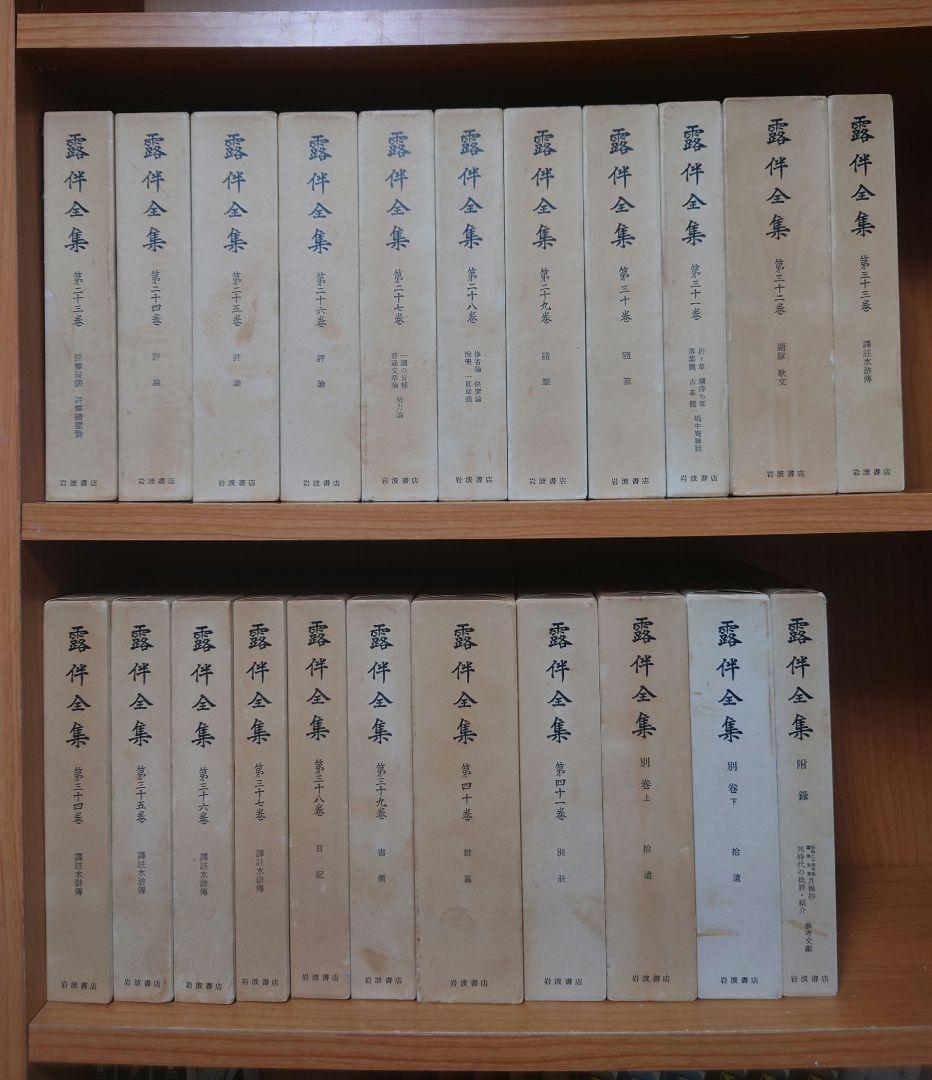 露伴全集 第二十三巻 評釋炭俵 評釋續猿蓑 岩波書店
露伴全集 第二十四巻 評論 岩波書店
露伴全集 第二十五巻 評論 岩波書店
露伴全集 第二十六巻 評論 岩波書店
露伴全集 第二十七巻
一國の首都 努力論
普通文章論
岩波書店
露伴全集 第二十八巻
修省論 快樂論
悦樂 一貫章義
岩波書店
露伴全集 第二十九巻 隨筆 岩波書店
露伴全集 第三十巻 隨筆 岩波書店
露伴全集 第三十一巻
折々草 潮待ち草 蝸牛庵聯話
落葉籠 古革籠
岩波書店
露伴全集 第三十二巻 題跋 歌文 岩波書店
露伴全集 第三十三巻 譯註水滸傳 岩波書店
露伴全集 第三十四巻 譯註水滸傳 岩波書店
露伴全集 第三十五巻 譯註水滸傳 岩波書店
露伴全集 第三十六巻 譯註水滸傳 岩波書店
露伴全集 第三十七巻 譯註水滸傳 岩波書店
露伴全集 第三十八巻 日記 岩波書店
露伴全集 第三十九巻 書簡 岩波書店
露伴全集 第四十巻 雜纂 岩波書店
露伴全集 第四十一巻 別册 岩波書店
露伴全集 別巻 上 拾遺 岩波書店
露伴全集 別巻 下 拾遺 岩波書店
露伴全集 附錄
月報抄
同時代の批評・紹介 參考文獻
岩波書店